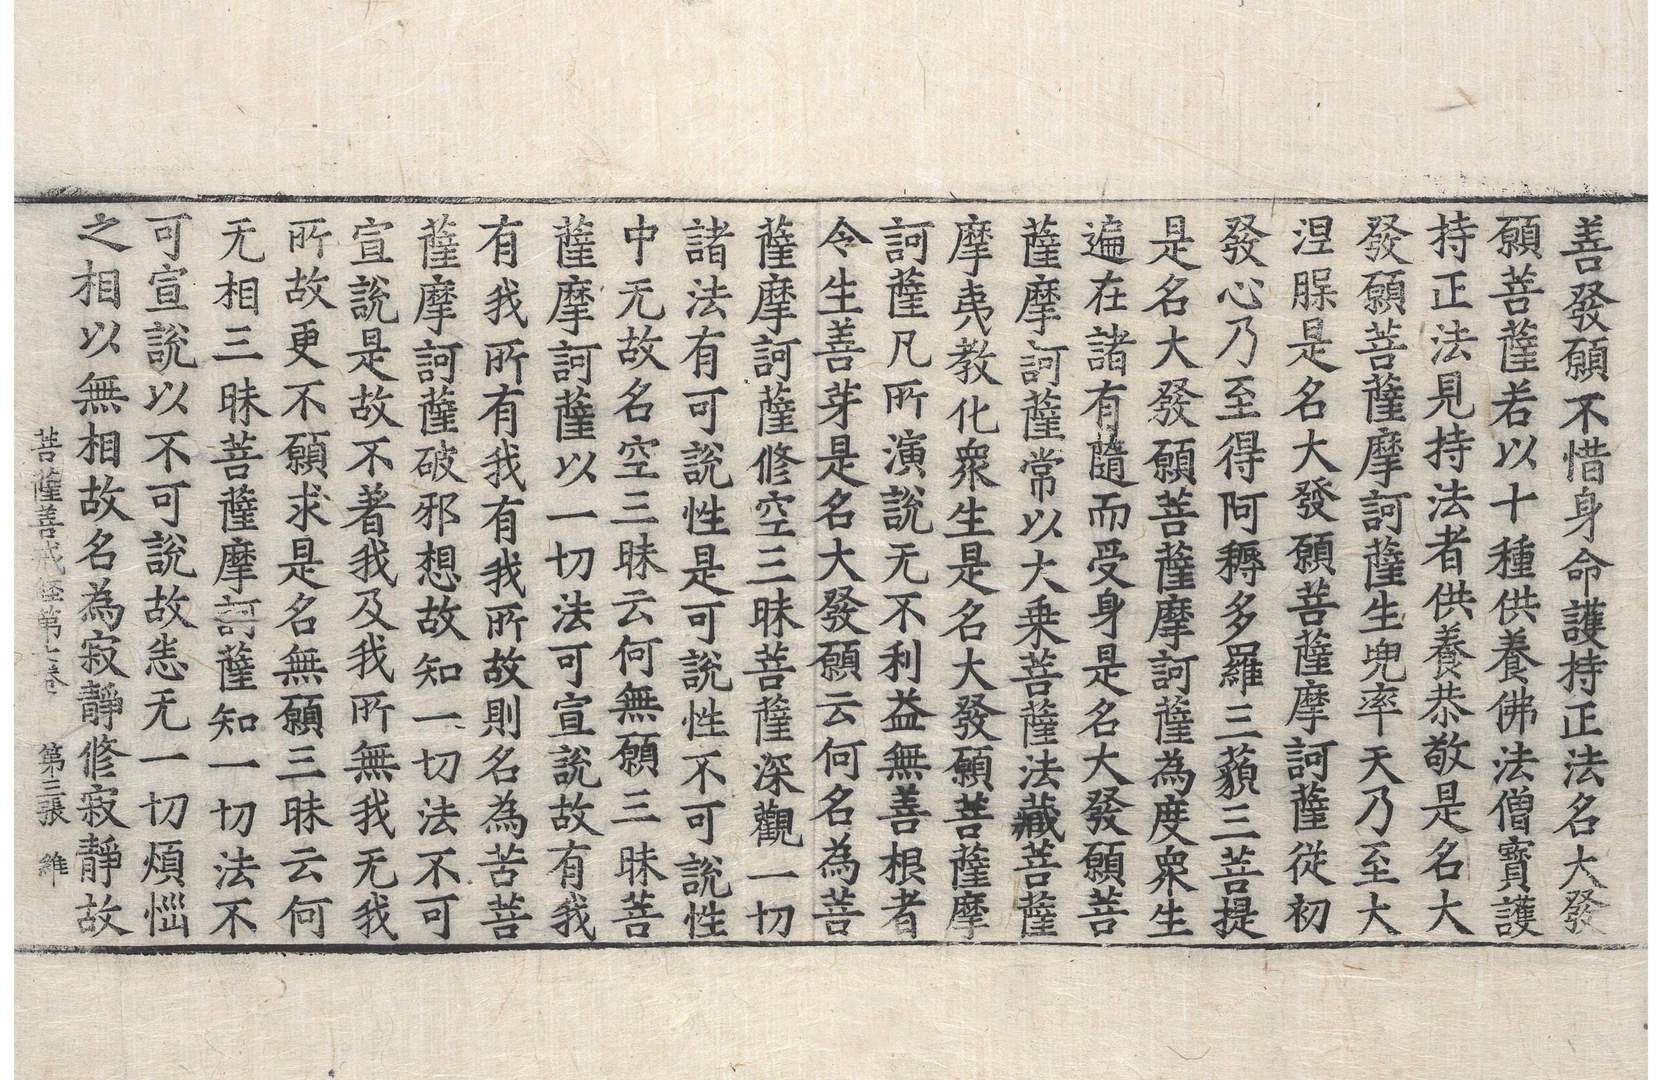 善發願不惜身命護持正法名大發
願菩薩若以十種供養佛法僧寶護
持正法見持法者供養恭敬是名大
發願菩薩摩訶薩生兜率天乃至大
涅槃是名大發願菩薩摩訶薩從初
發心乃至得阿耨多羅三藐三菩提
是名大發願菩薩摩訶薩為度衆生
遍在諸有隨而受身是名大發願菩
薩摩訶薩常以大乗菩薩法藏菩薩
摩夷教化衆生是名大發願菩薩摩
訶薩凡所演說无不利益無善根者
令生善芽是名大發願云何名為菩
薩摩訶薩修空三昧菩薩深觀一切
諸法有可說性是可說性不可說性
中无故名空三昧云何無願三昧菩
薩摩訶薩以一切法可宣說故有我
有我所有我有我所故則名為苦菩
薩摩訶薩破邪想故知一切法不可
宣說是故不著我及我所無我无我
所故更不願求是名無願三昧云何
无相三昧菩薩摩訶薩知一切法不
可宣說以不可說故恙无一切煩惱
之相以無相故名為寂靜修寂靜故
菩薩善戒経第七卷 第三張 維